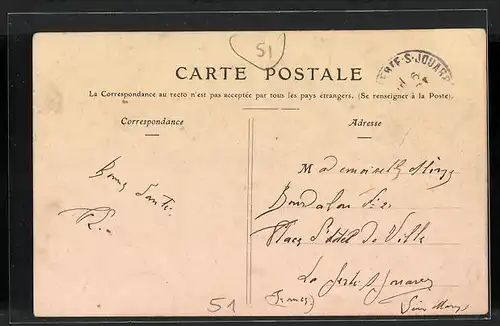 51
CARTE POSTALE
La Correspondance au recto n'est pas acceptée par tous les pays étrangers. (Se renseigner à la Poste).
Correspondance
Adresse
Bonne Santé
R.
Mademoiselle
Place l'Hôtel de Ville
La Ferté-s-Jouarre
51